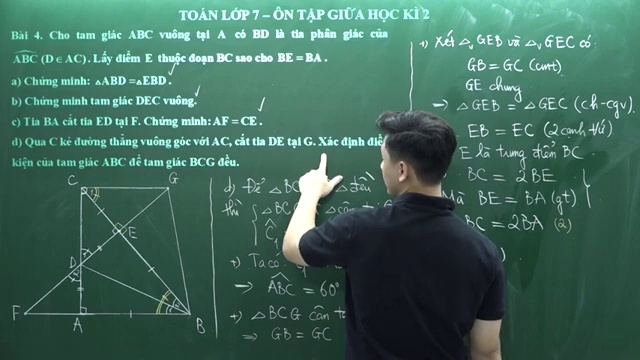 TOÁN LỚP 7 – ÔN TẬP GIỮA HỌC KÌ 2
Bài 4. Cho tam giác ABC vuông tại A có BD là tia phân giác của
ABC (D ∈ AC). Lấy điểm E thuộc đoạn BC sao cho BE = BA.
a) Chứng minh: △ABD = △EBD.
b) Chứng minh tam giác DEC vuông.
c) Tia BA cắt tia ED tại F. Chứng minh: AF = CE.
d) Qua C kẻ đường thẳng vuông góc với AC, cắt tia DE tại G. Xác định
kiện của tam giác ABC để tam giác BCG đều.
C
G
E
D
F
A
B
d) Để △BC △ đều
thì
+) Ta có:
→ ABC = 60°
+) △BCG cân
⇒ GB = GC
+) Xét △ᵥ GEB và △ᵥ GEC có
GB = GC (cmt)
GE chung
→ △GEB = △GEC (ch-cgv)
EB = EC (2 cạnh t/ứ)
E là trung điểm BC
BC = 2BE
Mà BE = BA (gt)
BC = 2BA (2)